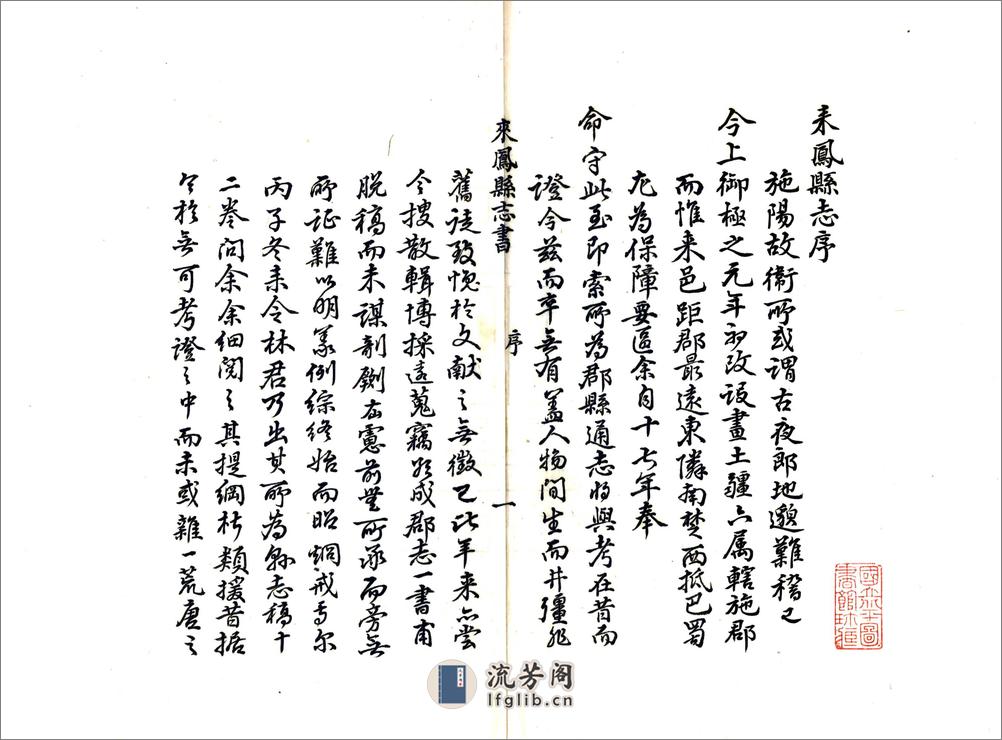 来鳳縣志序
施陽故衛所或謂古夜郎地邈難稽已
今上御極之元年初改設畫土疆六属轄施郡
而惟来邑距郡最遠東隣南楚西抵巴蜀
尤為保障要區余自十七年奉
命守此至即索所為郡縣通志將與考在昔而
證今兹而卒無有盖人物間生而井疆非
來鳳縣志書
序
一
舊徒致愧於文献之無徵已比年来亦嘗
令搜散輯博採遠蒐竊欲成郡志一書甫
脱稿而未謀剞劂在憲前無所承而旁無
所证難以明義例綜终始而昭烱戒于尔
丙子冬来令林君乃出其所為縣志稿十
二卷问余余细阅之其提綱析類援昔据
今於無可考證之中而未或雜一荒唐之
國立北平圖書館珍藏
流芳阁
lfglib.cn